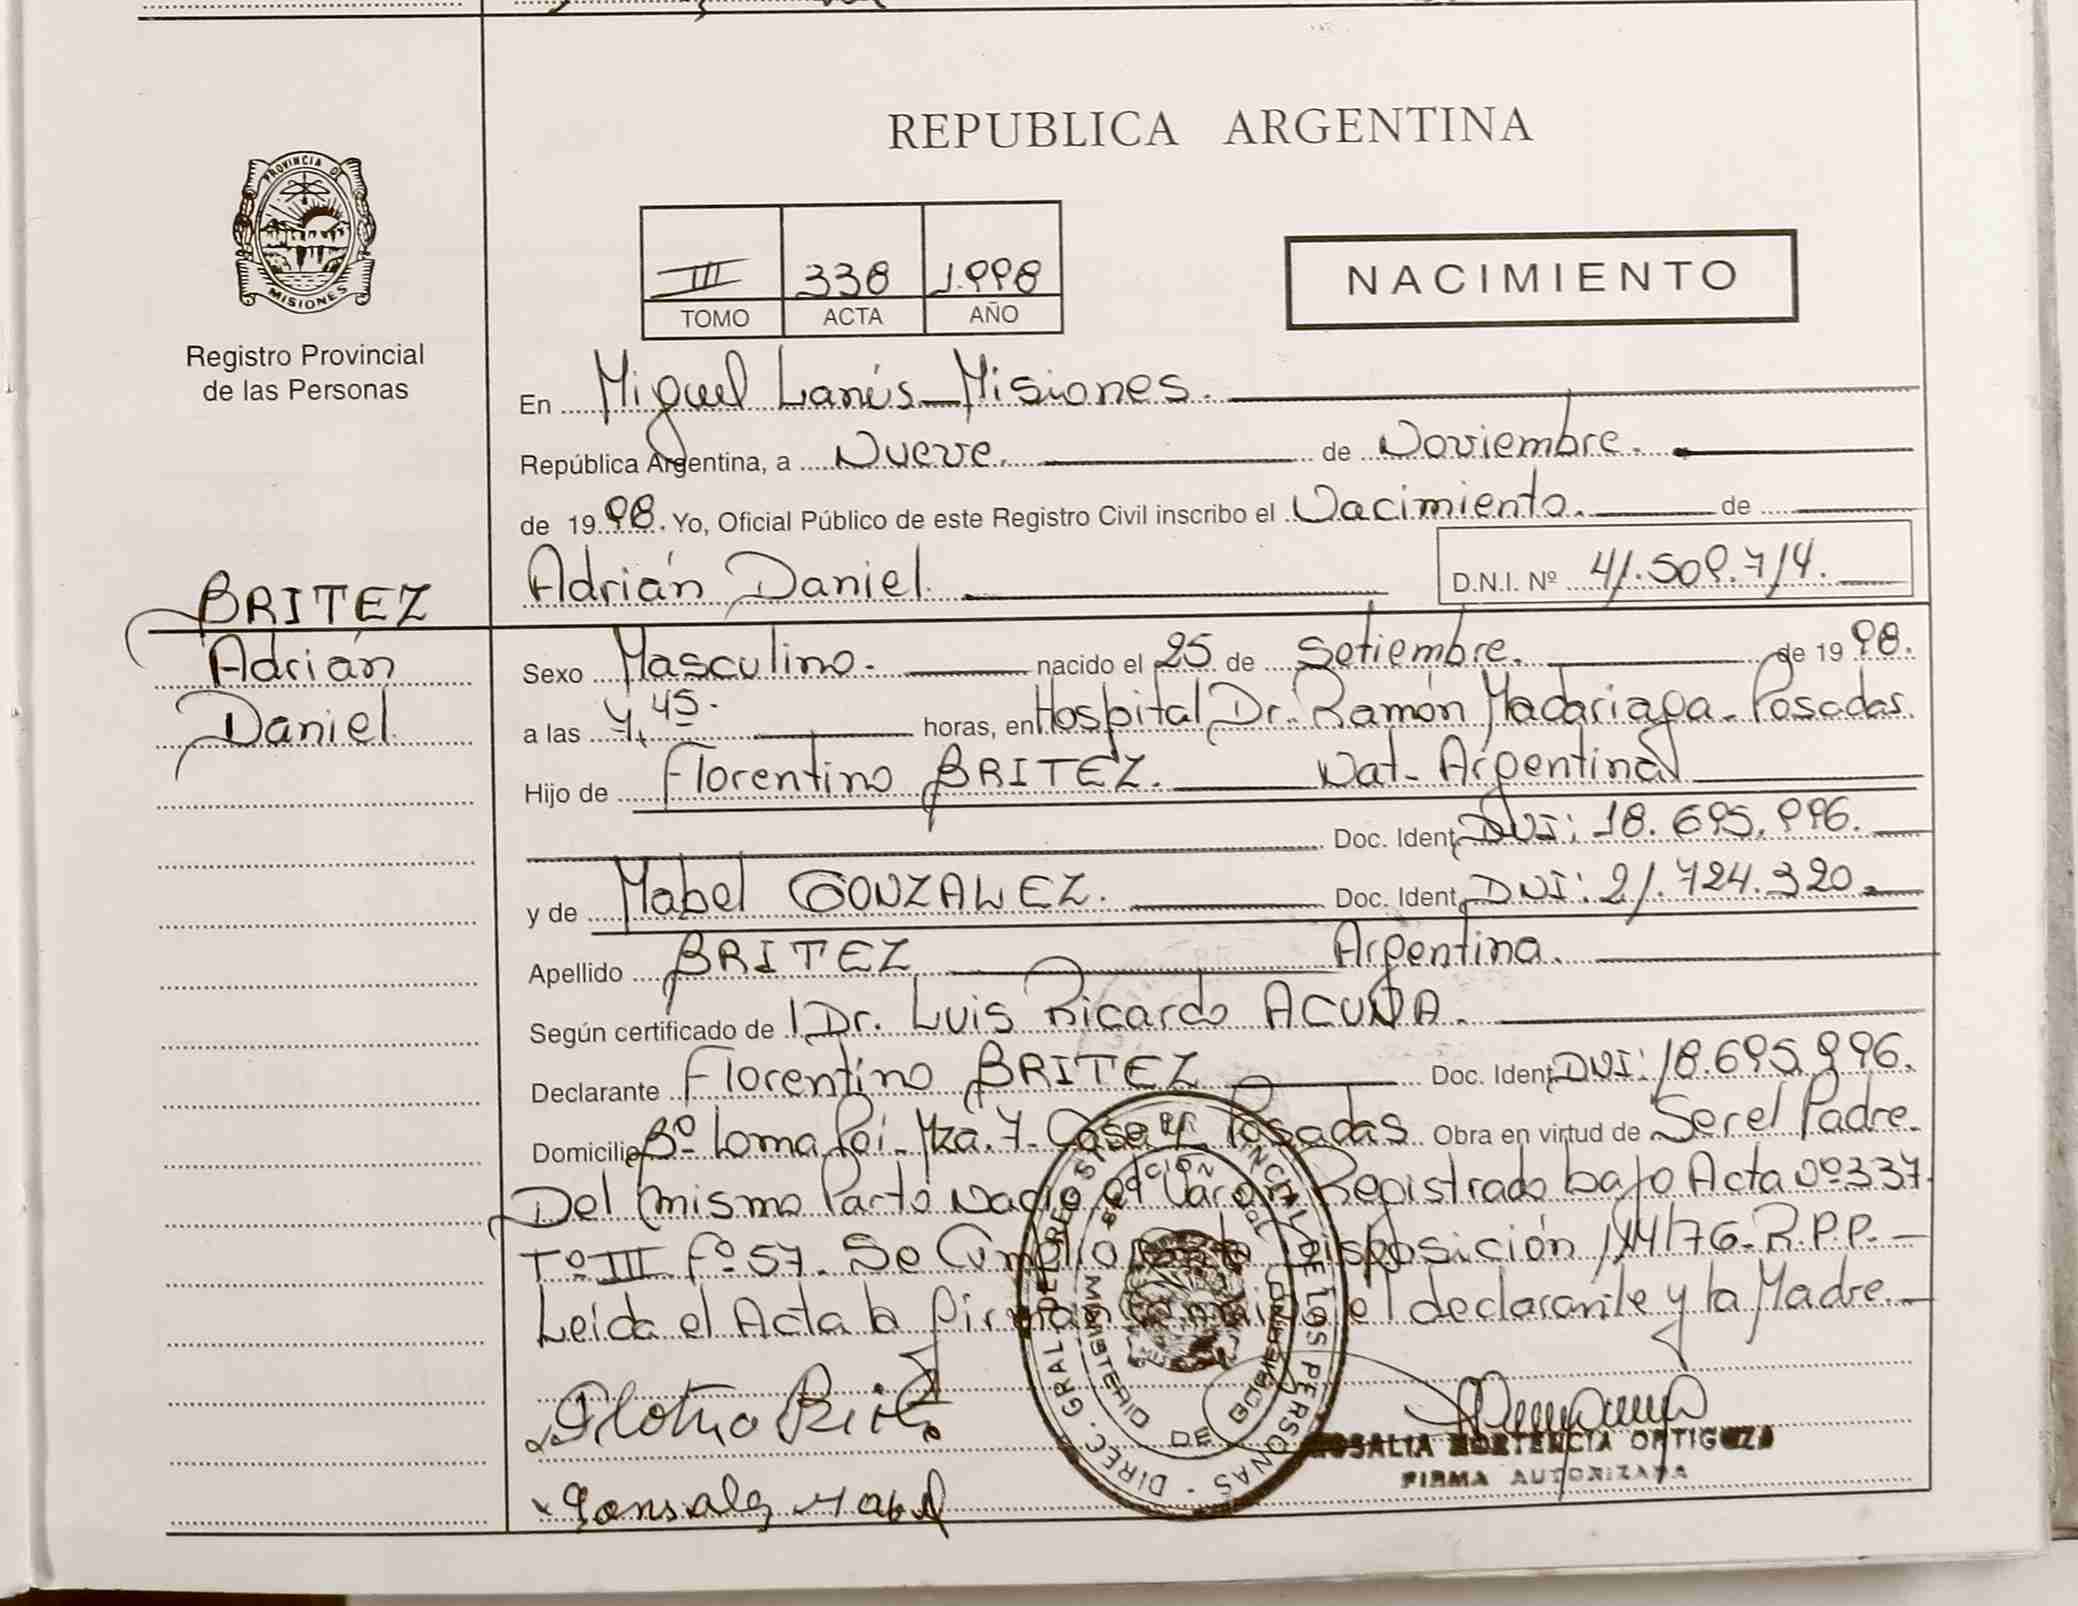 PROVINCIA DE
MISIONES
Registro Provincial
de las Personas
BRITEZ
Adrián
Daniel
REPUBLICA ARGENTINA
III 338 1.998
TOMO ACTA AÑO
NACIMIENTO
En Miguel Lanús - Misiones.
República Argentina, a Nueve. de Noviembre.
de 1998. Yo, Oficial Público de este Registro Civil inscribo el Nacimiento. de
Adrián Daniel. D.N.I. Nº 41.509.714.
Sexo Masculino. nacido el 25 de Setiembre. de 1998.
a las 4,45. horas, en Hospital Dr. Ramón Madariaga - Posadas.
Hijo de Florentino BRITEZ. Nat. Argentina
Doc. Ident. DNI: 18.695.996.
y de Mabel GONZALEZ. Doc. Ident. DNI: 21.724.320.
Apellido BRITEZ Argentina.
Según certificado de Dr. Luis Ricardo ACUÑA.
Declarante Florentino BRITEZ Doc. Ident. DNI: 18.695.996.
Domicilio Bº Loma Poi - Mza. 7 - Casa Posadas Obra en virtud de Ser el Padre.
Del mismo Parto Nació Varón Registrado bajo Acta Nº 337
Tº III Fº 57. Se Cumplió Disposición 114/76 - R.P.P. -
Leída el Acta la Firman conmigo el declarante y la Madre
Gonsalez Mabel
DIREC. GRAL. DE REGISTRO PROVINCIAL DE LOS PERSONAS
MINISTERIO DE GOBIERNO
ROSALIA HORTENCIA ORTIGOZA
FIRMA AUTORIZADA